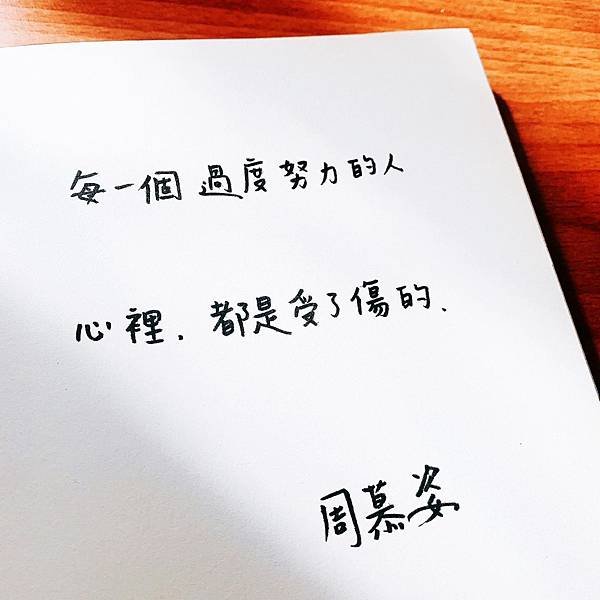 每一個過度努力的人
心裡、都是受了傷的、
周慕姿